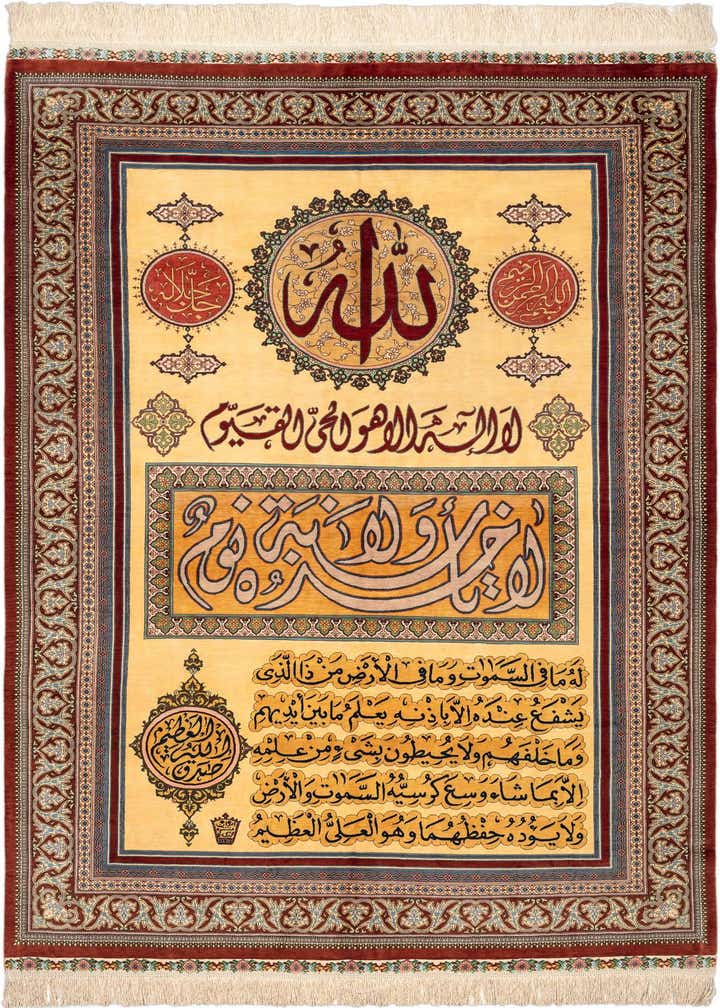 بسم الله الرحمن الرحيم
الله
جل جلاله
لا اله الا هو الحى القيوم
لا تأخذه سنة ولا نوم
لَهُ مَا فِى السَّمٰوٰتِ وَمَا فِى الْأَرْضِ مَنْ ذَا الَّذِى
يَشْفَعُ عِنْدَهُ اِلَّا بِاِذْنِهِ يَعْلَمُ مَا بَيْنَ أَيْدِيهِمْ
وَمَا خَلْفَهُمْ وَلَا يُحِيطُونَ بِشَىْءٍ مِنْ عِلْمِهِ
اِلَّا بِمَا شَاءَ وَسِعَ كُرْسِيُّهُ السَّمٰوٰتِ وَالْأَرْضَ
وَلَا يَؤُدُهُ حِفْظُهُمَا وَهُوَ الْعَلِىُّ الْعَظِيمُ
صدق الله العظيم